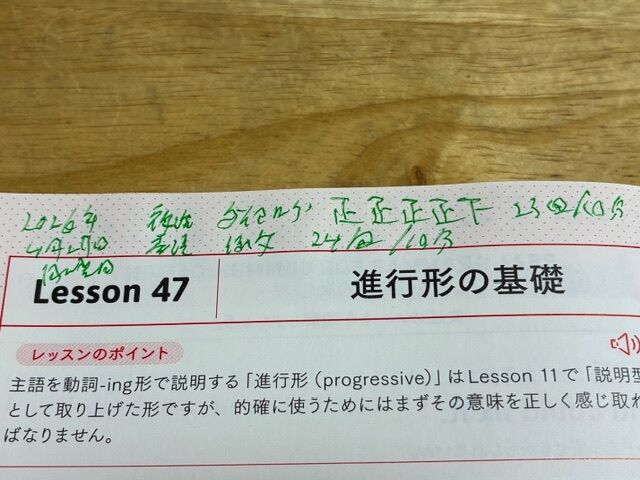 2026年 音読 ダイアログ 正正正正下 23回/10分
4月27日 音読 例文 24回/10分
月曜日
Lesson 47 進行形の基礎
レッスンのポイント
主語を動詞-ing形で説明する「進行形 (progressive)」はLesson 11で「説明型
として取り上げた形ですが、的確に使うためにはまずその意味を正しく感じ取れ
ばなりません。